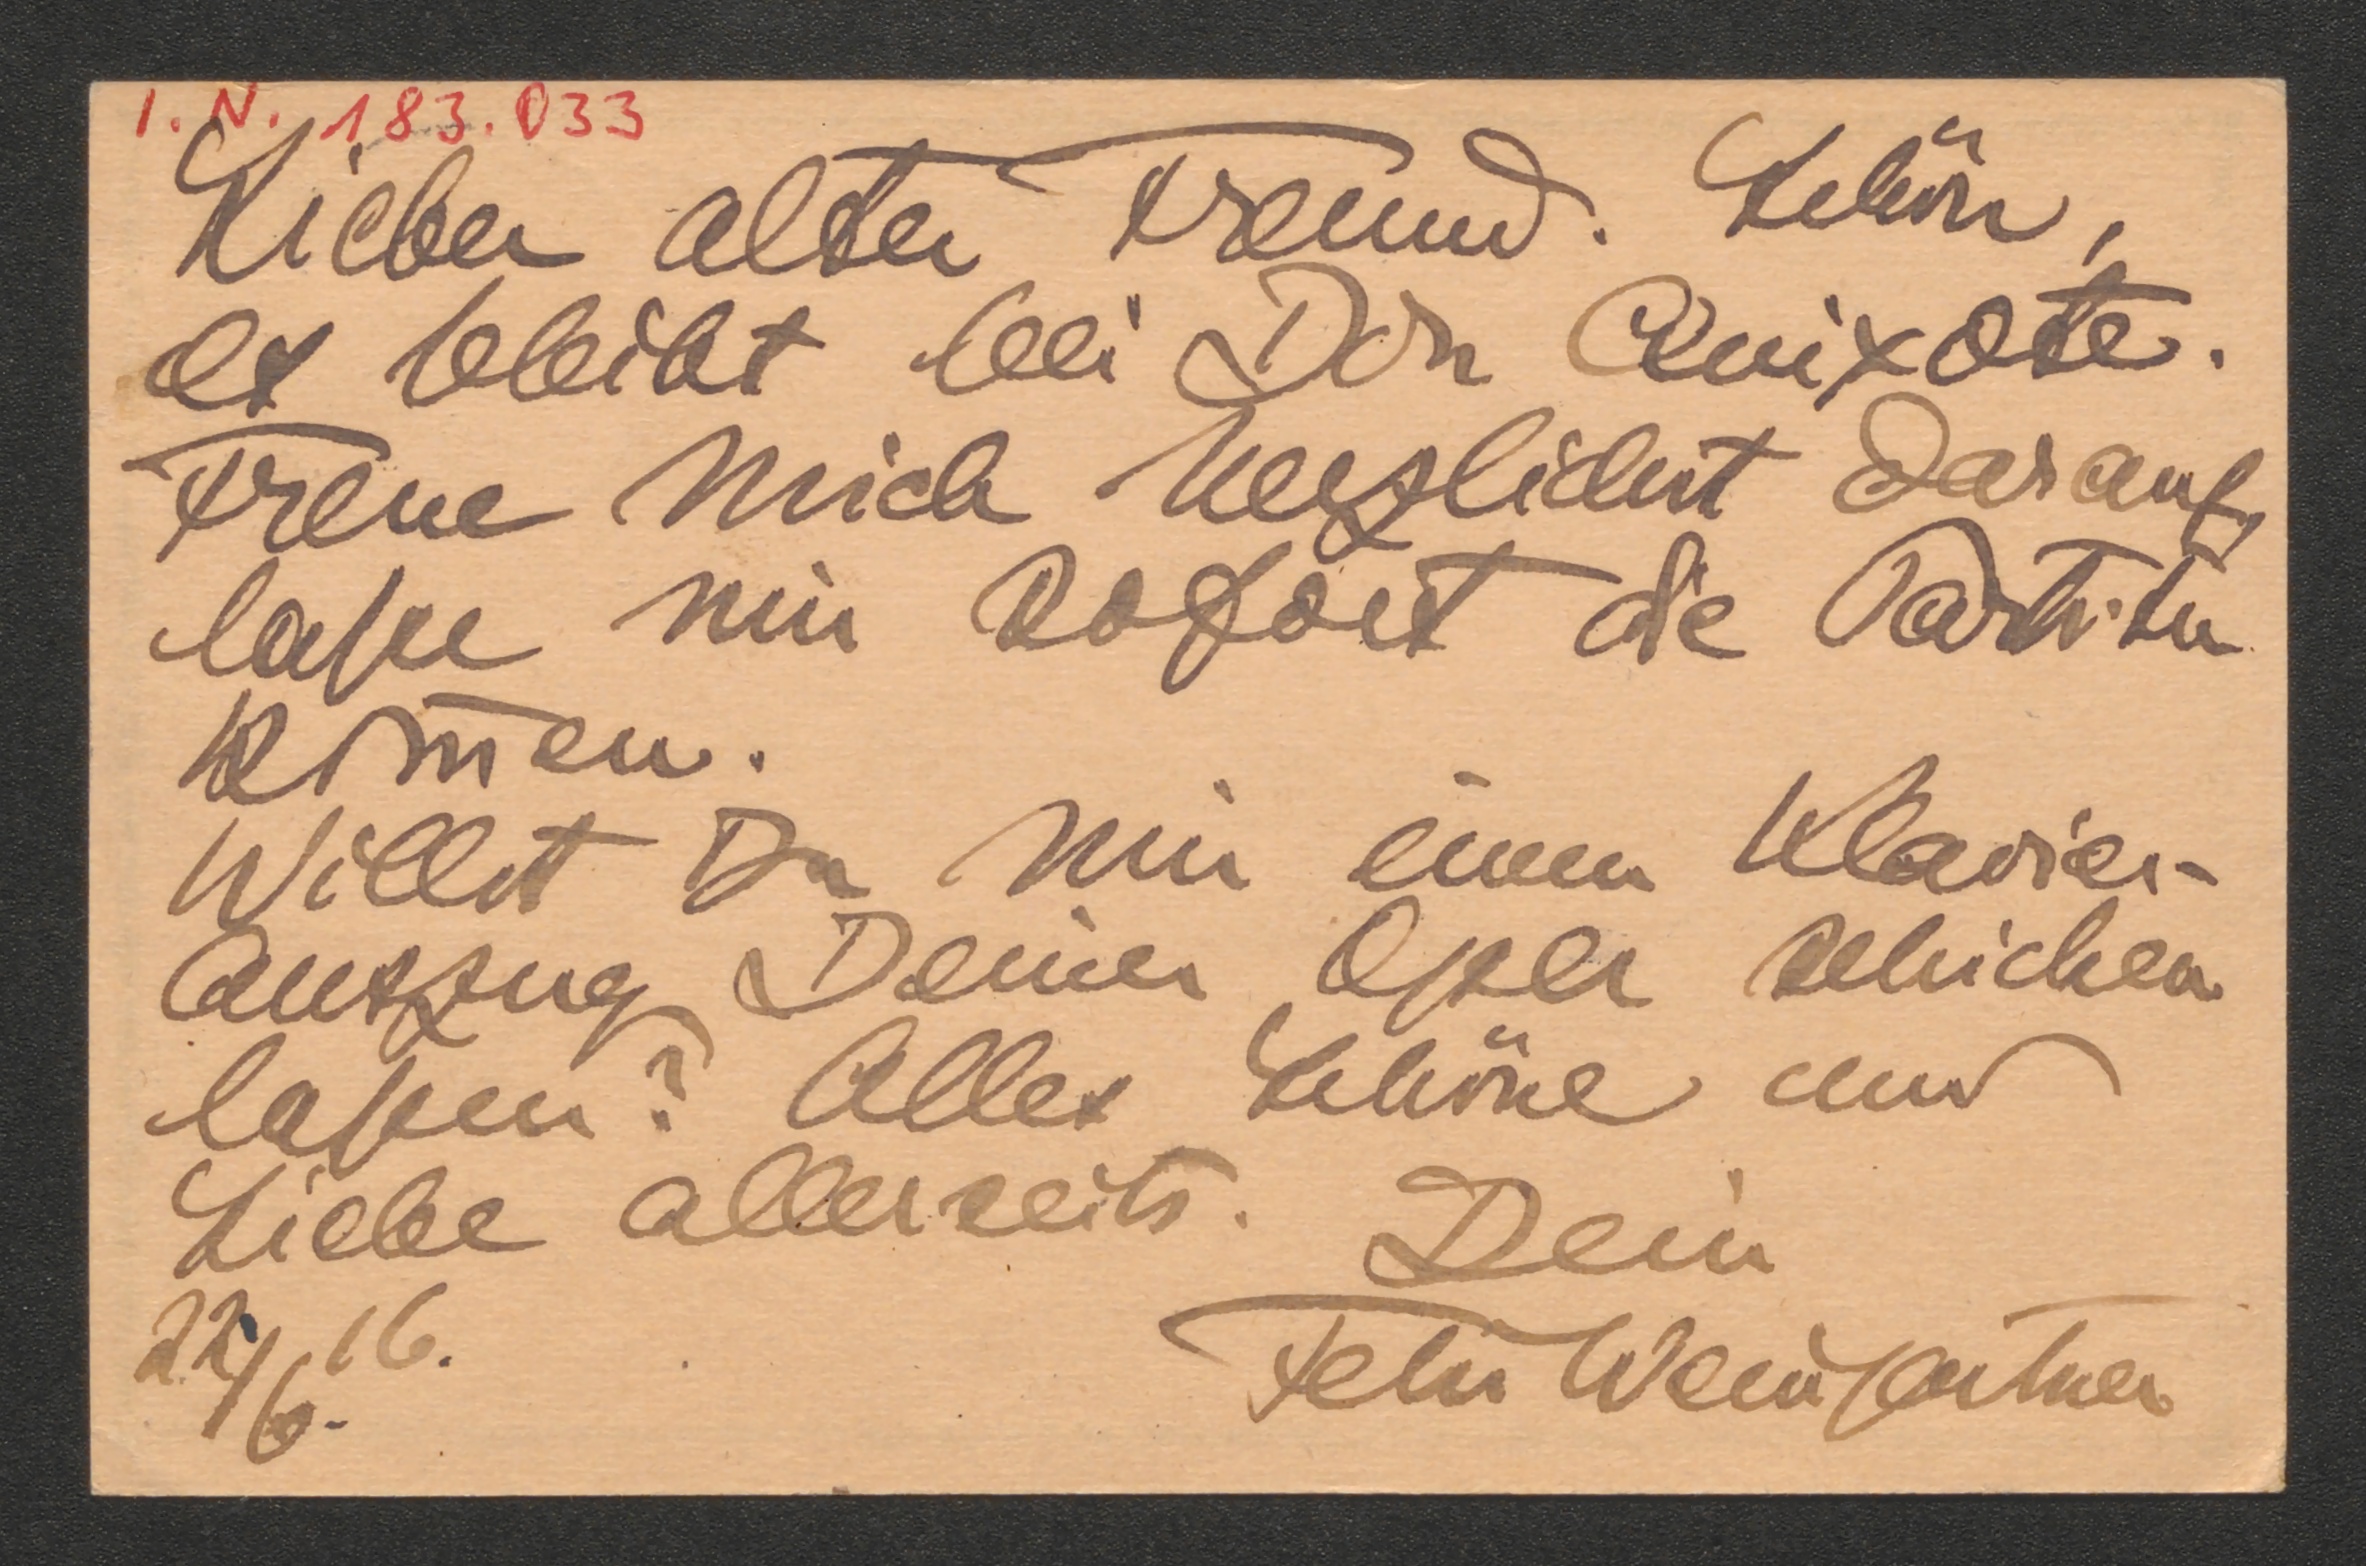 I. N. 183.033
Lieber alter Freund. Schön,
es bleibt bei Don Quixote.
Freue mich herzlichst darauf,
laſse mir sofort die Partitur
kom̅en.
Willst Du mir einen Klavier-
Auszug Deiner Oper schicken
laſsen? Alles Schöne und
Liebe allerseits. Dein
22/6. 16. Felix Weingartner